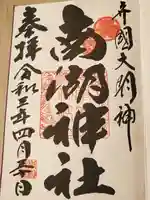 弁国大明神
南湖神社
奉拝 令和三年四月三日